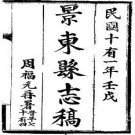 民國十有一年壬戌
景東縣志稿
周福元